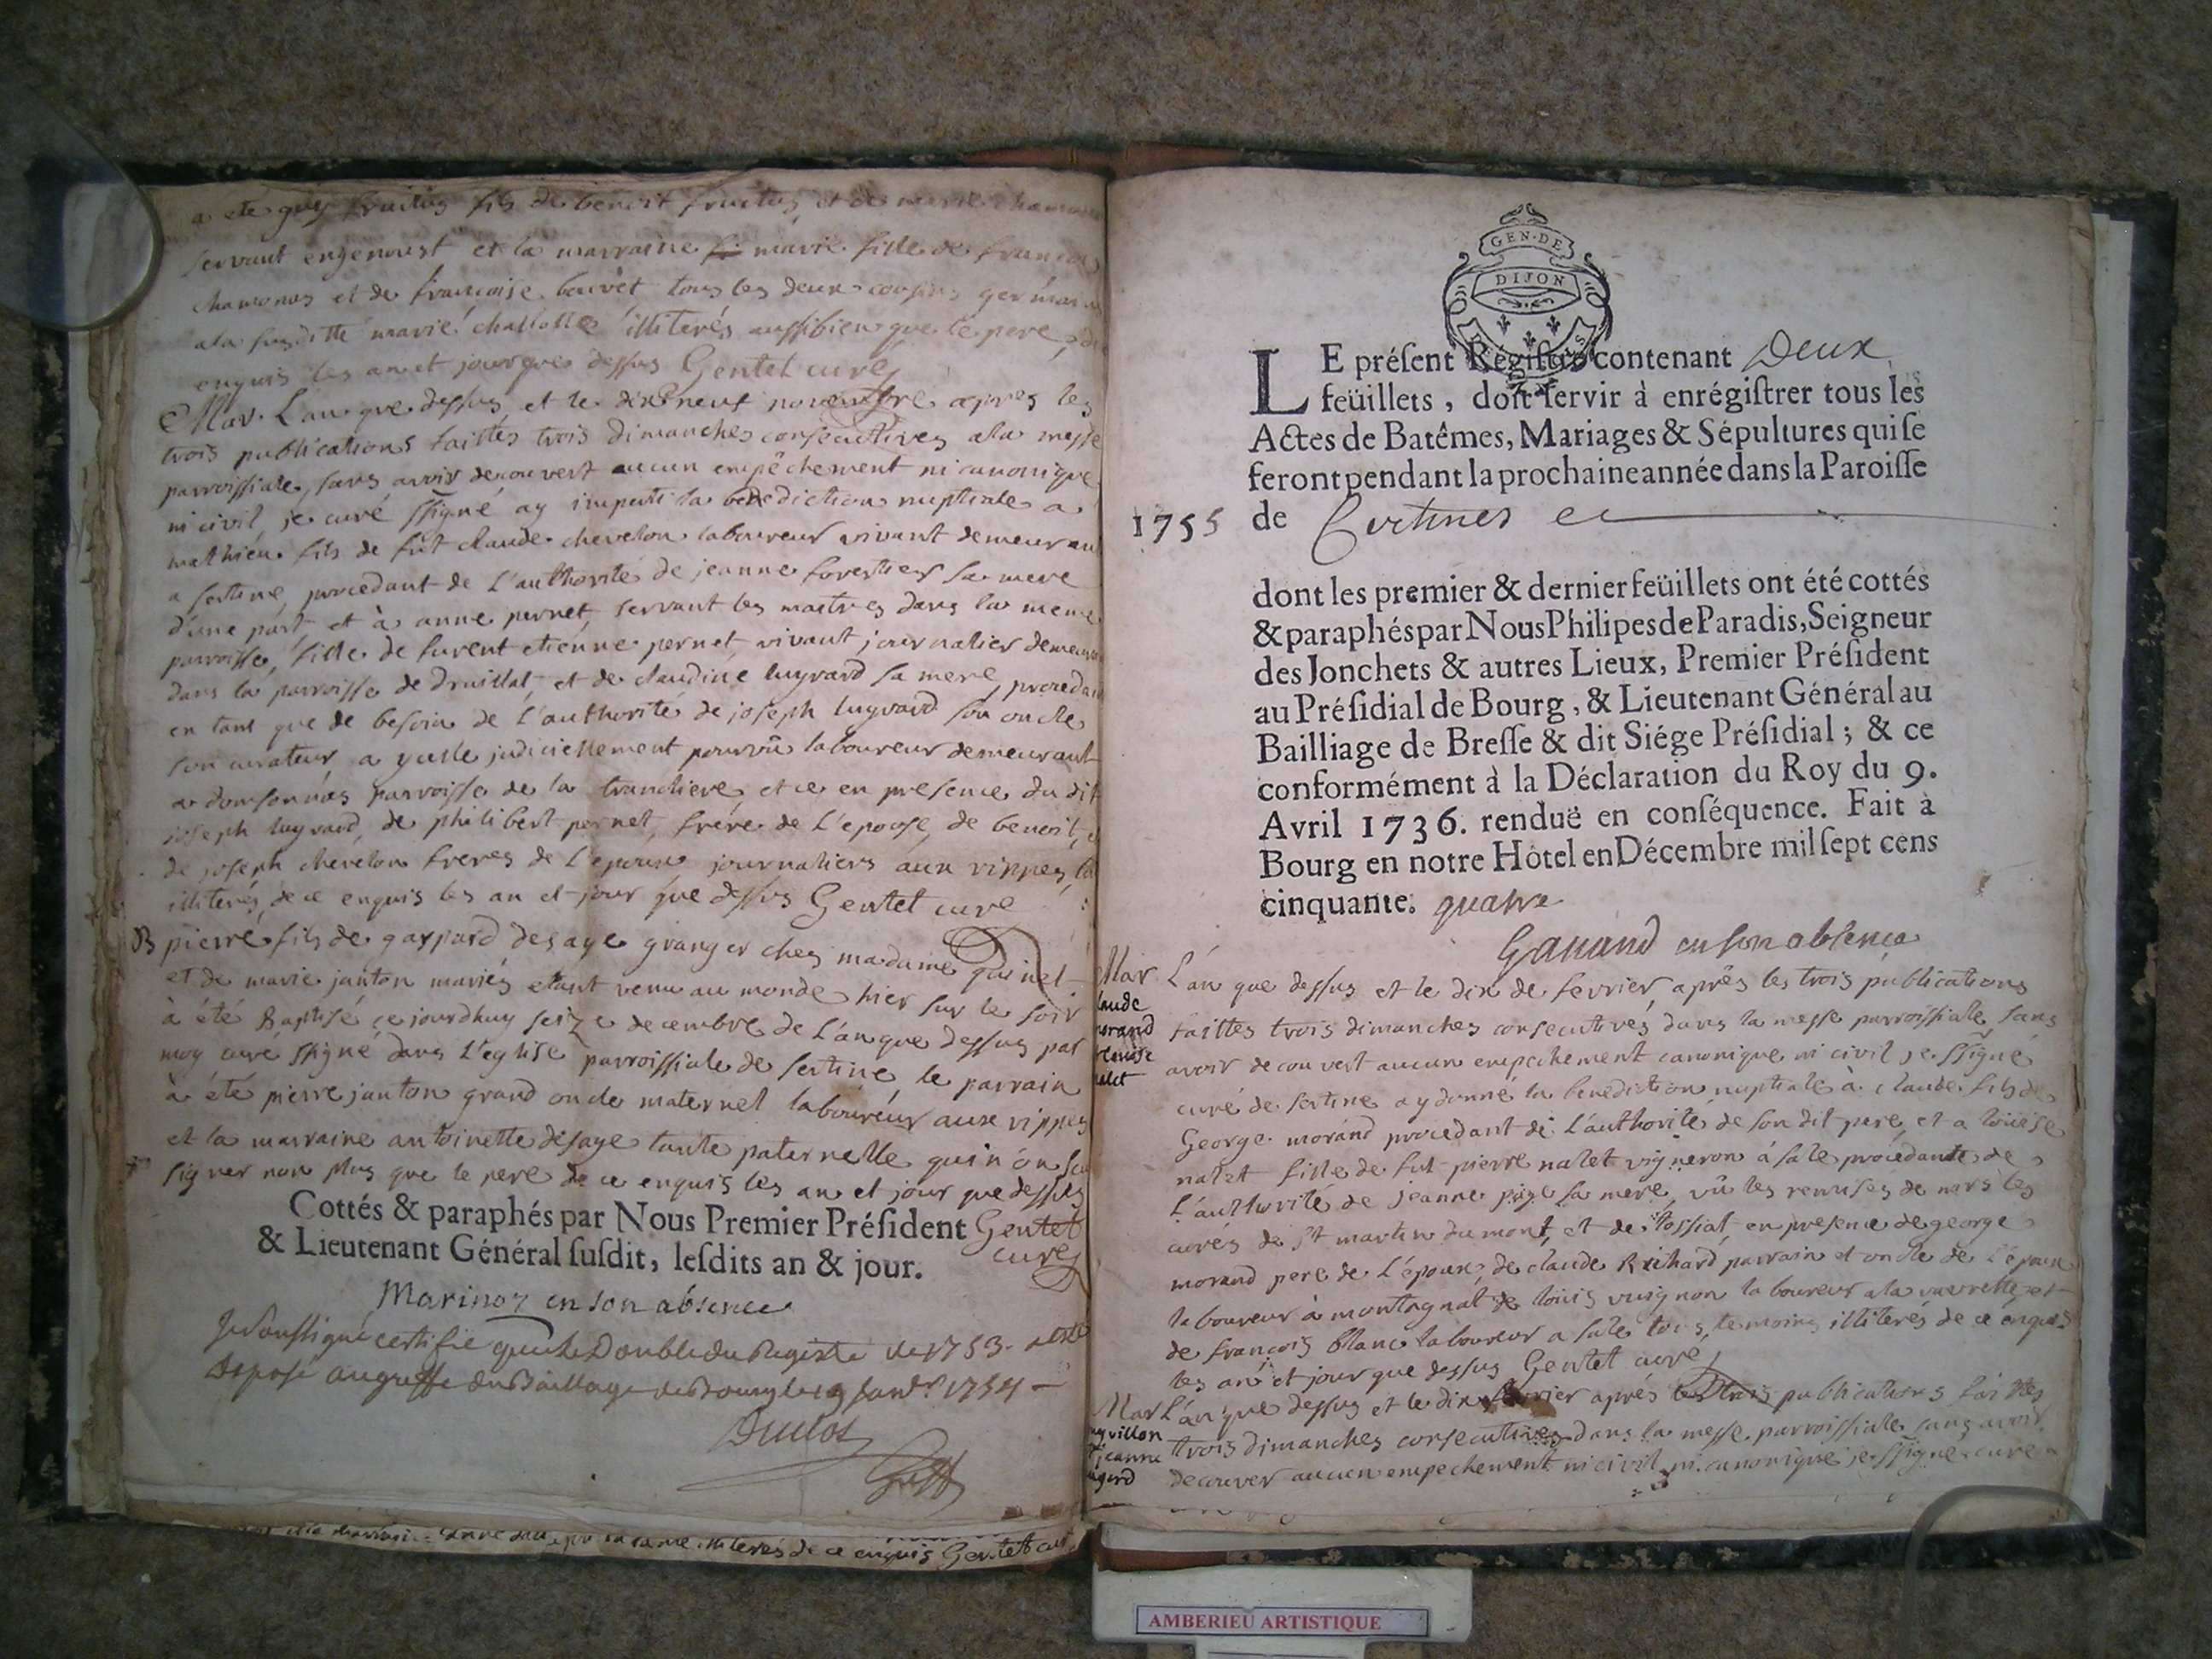 a ete guy fruitus fils de benoit fruitus et de marie chamonas
servant engenoust et la marraine marie fille de francois
chamonas et de francoise bouvet tous les deux cousins germains
a la susditte marie illiterés aussibien que le pere de
enquis les an et jour que dessus Gentet curé
Mar. L'an que dessus et le dixneuf novembre apres les
trois publications faittes trois dimanches consecutives a la messe
parroissiale, sans avoir decouvert aucun empêchement ni canonique
ni civil, je curé ssigné ay imparti la benediction nuptiale a
mathieu fils de fut claude chevelon laboureur vivant demeurant
a sertine, procedant de l'authorité de jeanne forestier sa mere
d'une part, et à anne pernet, servant les maitres dans la meme
parroisse, fille de furent etienne pernet, vivant journalier demeurant
dans la parroisse de Druillat, et de claudine luyvard sa mere, procedant
en tant que de besoin de l'authorité de joseph luyvard son oncle
son curateur a ycelle judiciellement pourvû laboureur demeurant
a domsonnas parroisse de la tranchere, et ce en presence du dit
joseph luyvard, de philibert pernet, frere de l'epouse, de benoit, et
de joseph chevelon freres de l'epoux journaliers aux rippes,
illiterés, de ce enquis les an et jour que dessus Gentet curé
B pierre fils de gaspard desaye granger chez madame
et de marie janton mariés etant venu au monde hier sur le soir
à été Baptisé ce jourdhuy seize decembre de l'an que dessus par
moy curé ssigné dans l'eglise parroissiale de sertine, le parrain
à été pierre janton grand oncle maternel laboureur aux rippes
et la marraine antoinette desaye tante paternelle qui n'ont su
signer non plus que le pere de ce enquis les an et jour que dessus
Gentet
curé
Cottés & paraphés par Nous Premier Préſident
& Lieutenant Général ſuſdit, leſdits an & jour.
Marinoz en son absence
Je soussigné certifie que le Double du Registre de 1753 a été
Deposé au greffe du Baillage de Bourg le 19 Janvr 1754
Duclos
Greff
illiteres de ce enquis Gentet curé
GEN·DE
DIJON
LE préſent Régiſtre contenant Deux
feüillets, doit ſervir à enrégiſtrer tous les
Actes de Batêmes, Mariages & Sépultures qui ſe
feront pendant la prochaine année dans la Paroiſſe
1755 de Certines
dont les premier & dernier feüillets ont été cottés
& paraphés par Nous Philipes de Paradis, Seigneur
des Jonchets & autres Lieux, Premier Préſident
au Préſidial de Bourg, & Lieutenant Général au
Bailliage de Breſſe & dit Siége Préſidial; & ce
conformément à la Déclaration du Roy du 9.
Avril 1736. renduë en conſéquence. Fait à
Bourg en notre Hôtel en Décembre mil ſept cens
cinquante. quatre
en son absence
Mar L'an que dessus et le dix de fevrier, après les trois publications
laude
morand
louise
nalet
faittes trois dimanches consecutives dans la messe parroissiale, sans
avoir decouvert aucun empechement canonique ni civil je ssigné
curé de sertine ay donné la benediction nuptiale à claude fils de
George morand procedant de l'authorité de son dit pere, et a louise
nalet fille de fut pierre nalet vigneron à sale procedante de
l'authorité de jeanne sa mere, vû les remises de mrs les
curés de st martin du mont, et de tossiat en presence de george
morand pere de l'époux, de claude Richard parrain et oncle de l'époux
laboureur à montagnat de louis vuignon laboureur a la vavrette, et
de francois blanc laboureur a sale tous temoins illiterés de ce enquis
les an et jour que dessus Gentet curé
Mar L'an que dessus et le dix fevrier aprés les trois publications faittes
uyvillon
jeanne
trois dimanches consecutives dans la messe parroissiale sans avoir
decouver aucun empechement ni civil ni canonique je ssigné curé
AMBERIEU ARTISTIQUE